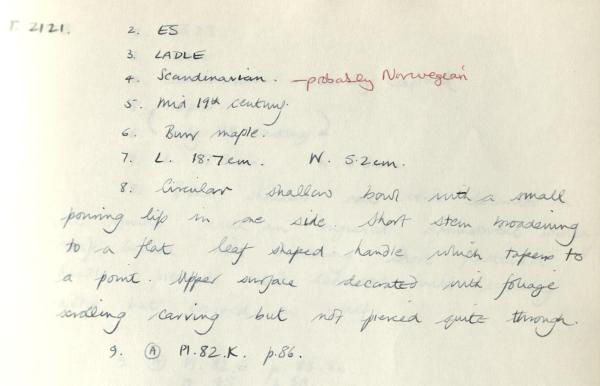 T. 2121. 2. ES
3. LADLE
4. Scandinavian. - probably Norwegian
5. Mid 19th century.
6. Burr maple.
7. L. 18.7cm. W. 5.2cm.
8. Circular shallow bowl with a small
pouring lip in one side. Short stem broadening
to a flat leaf shaped handle which tapers to
a point. Upper surface decorated with foliage
scrolling carving but not pierced quite through.
9. A Pl.82.K. p.86.